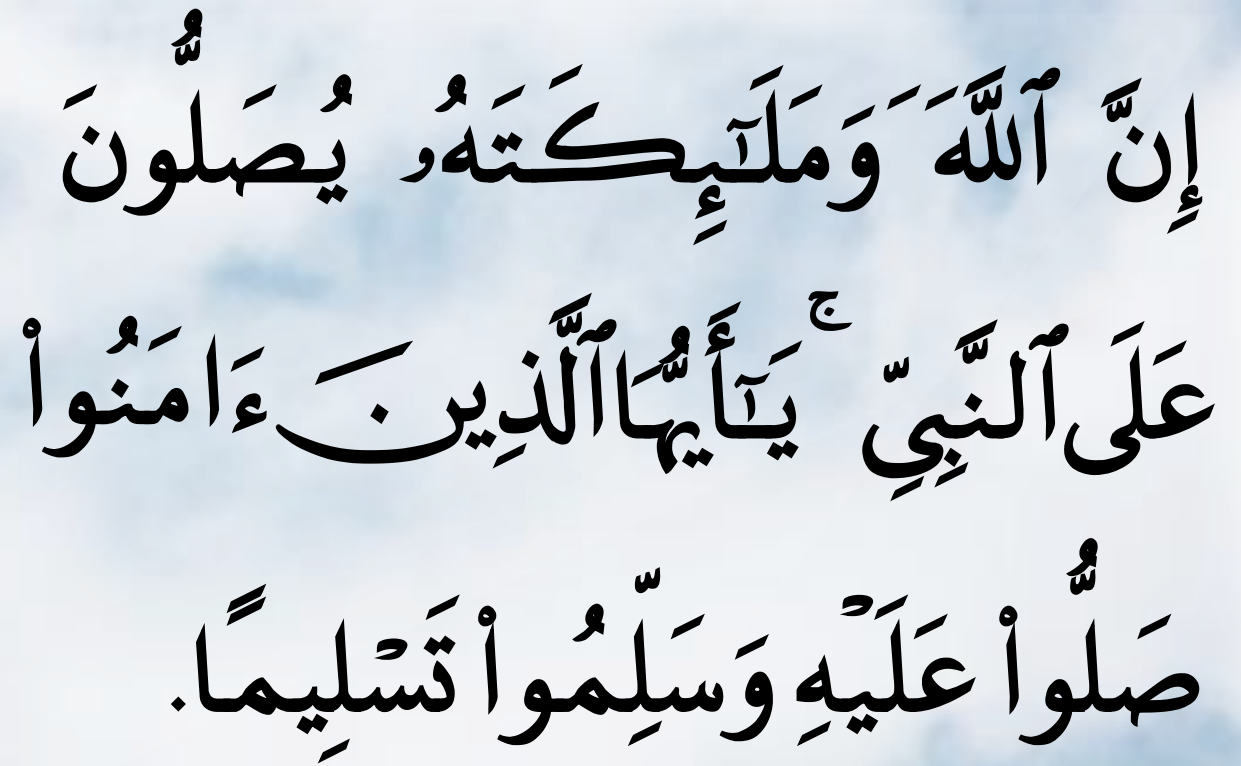 إِنَّ ٱللَّهَ وَمَلَـٰٓئِكَتَهُۥ يُصَلُّونَ
عَلَى ٱلنَّبِيِّ ۚ يَـٰٓأَيُّهَا ٱلَّذِينَ ءَامَنُوا۟
صَلُّوا۟ عَلَيْهِ وَسَلِّمُوا۟ تَسْلِيمًا.